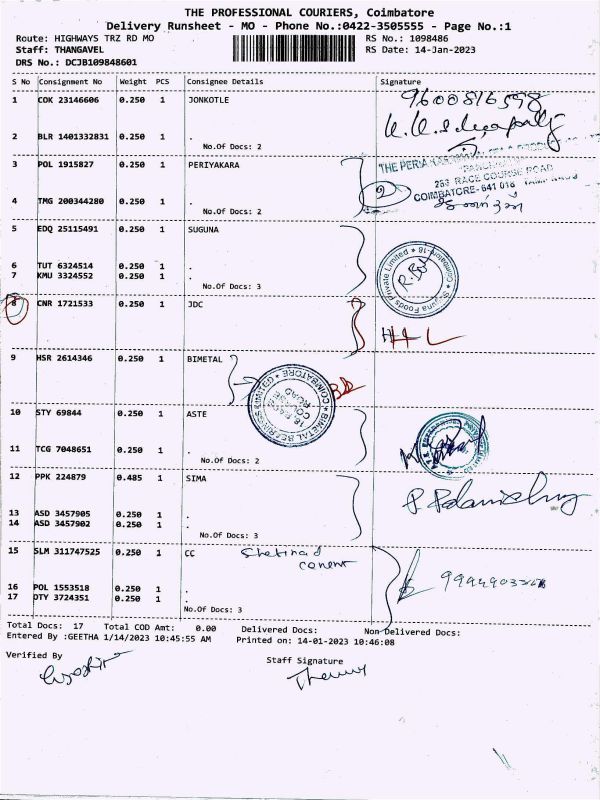 THE PROFESSIONAL COURIERS, Coimbatore
Delivery Runsheet - MO - Phone No.:0422-3505555 - Page No.:1
Route: HIGHWAYS TRZ RD MO
RS No.: 1098486
Staff: THANGAVEL
RS Date: 14-Jan-2023
DRS No.: DCJB109848601
S No Consignment No Weight PCS Consignee Details Signature
1 COK 23146606 0.250 1 JONKOTLE 9600816598
2 BLR 1401332831 0.250 1 .
No.Of Docs: 2
3 POL 1915827 0.250 1 PERIYAKARA
RACE COURSE ROAD
COIMBATORE-641 018
4 TMG 200344280 0.250 1 .
No.Of Docs: 2
5 EDQ 25115491 0.250 1 SUGUNA
Suguna Foods Private Limited * Coimbatore-18 *
6 TUT 6324514 0.250 1 .
7 KMU 3324552 0.250 1 .
No.Of Docs: 3
8 CNR 1721533 0.250 1 JDC
9 HSR 2614346 0.250 1 BIMETAL
BIMETAL BEARINGS LIMITED * COIMBATORE
10 STY 69844 0.250 1 ASTE
11 TCG 7048651 0.250 1 .
No.Of Docs: 2
12 PPK 224879 0.485 1 SIMA
13 ASD 3457905 0.250 1 .
14 ASD 3457902 0.250 1 .
No.Of Docs: 3
15 SLM 311747525 0.250 1 CC
16 POL 1553518 0.250 1 .
17 DTY 3724351 0.250 1 .
No.Of Docs: 3
Total Docs: 17 Total COD Amt: 0.00 Delivered Docs: Non Delivered Docs:
Entered By :GEETHA 1/14/2023 10:45:55 AM Printed on: 14-01-2023 10:46:08
Verified By
Staff Signature